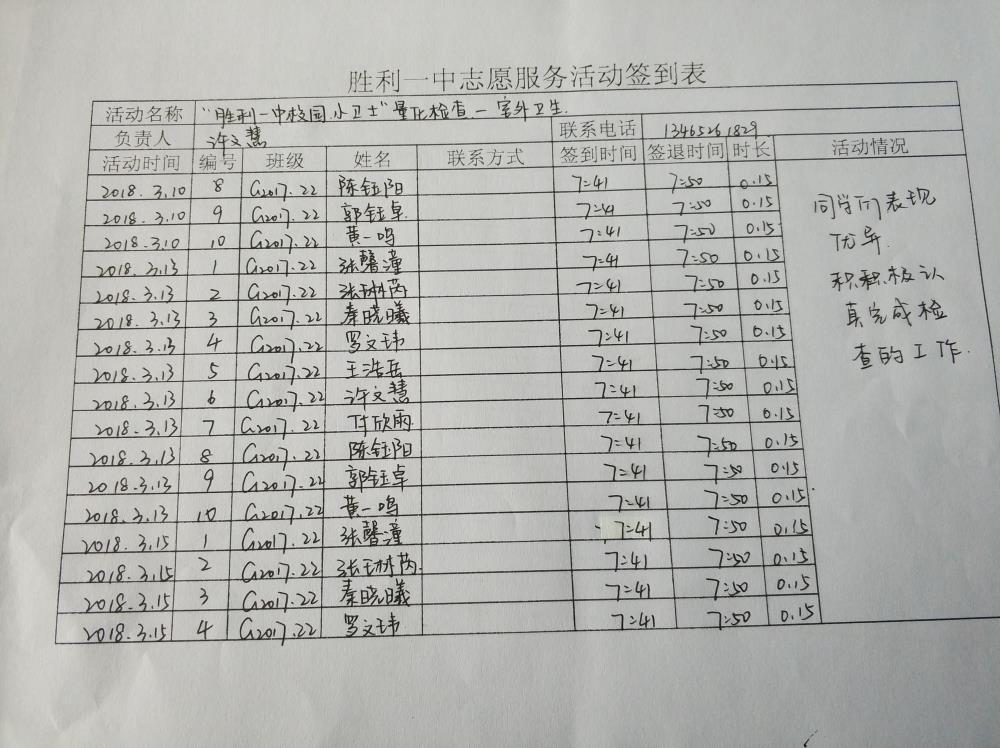 胜利一中志愿服务活动签到表
活动名称 "胜利一中校园小卫士"量化检查-室外卫生.
负责人 许文慧 联系电话 13465261829
活动时间 编号 班级 姓名 联系方式 签到时间 签退时间 时长 活动情况
2018.3.10 8 G2017.22 陈钰阳 7:41 7:50 0.15
2018.3.10 9 G2017.22 郭钰卓 7:41 7:50 0.15
2018.3.10 10 G2017.22 黄一鸣 7:41 7:50 0.15
2018.3.13 1 G2017.22 张馨潼 7:41 7:50 0.15
2018.3.13 2 G2017.22 张琳芮 7:41 7:50 0.15
2018.3.13 3 G2017.22 秦晓曦 7:41 7:50 0.15
2018.3.13 4 G2017.22 罗文玮 7:41 7:50 0.15
2018.3.13 5 G2017.22 王浩岳 7:41 7:50 0.15
2018.3.13 6 G2017.22 许文慧 7:41 7:50 0.15
2018.3.13 7 G2017.22 付欣雨 7:41 7:50 0.15
2018.3.13 8 G2017.22 陈钰阳 7:41 7:50 0.15
2018.3.13 9 G2017.22 郭钰卓 7:41 7:50 0.15
2018.3.13 10 G2017.22 黄一鸣 7:41 7:50 0.15
2018.3.15 1 G2017.22 张馨潼 7:41 7:50 0.15
2018.3.15 2 G2017.22 张琳芮. 7:41 7:50 0.15
2018.3.15 3 G2017.22 秦晓曦 7:41 7:50 0.15
2018.3.15 4 G2017.22 罗文玮 7:41 7:50 0.15
同学们表现
优异.
积积极认
真完成检
查的工作.